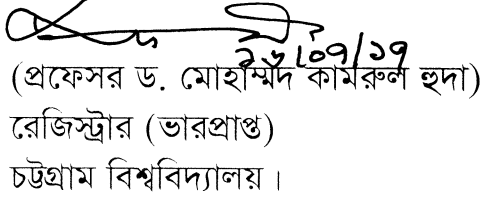 ২৬/০৭/১৭
(প্রফেসর ড. মোহাম্মদ কামরুল হুদা)
রেজিস্ট্রার (ভারপ্রাপ্ত)
চট্টগ্রাম বিশ্ববিদ্যালয়।